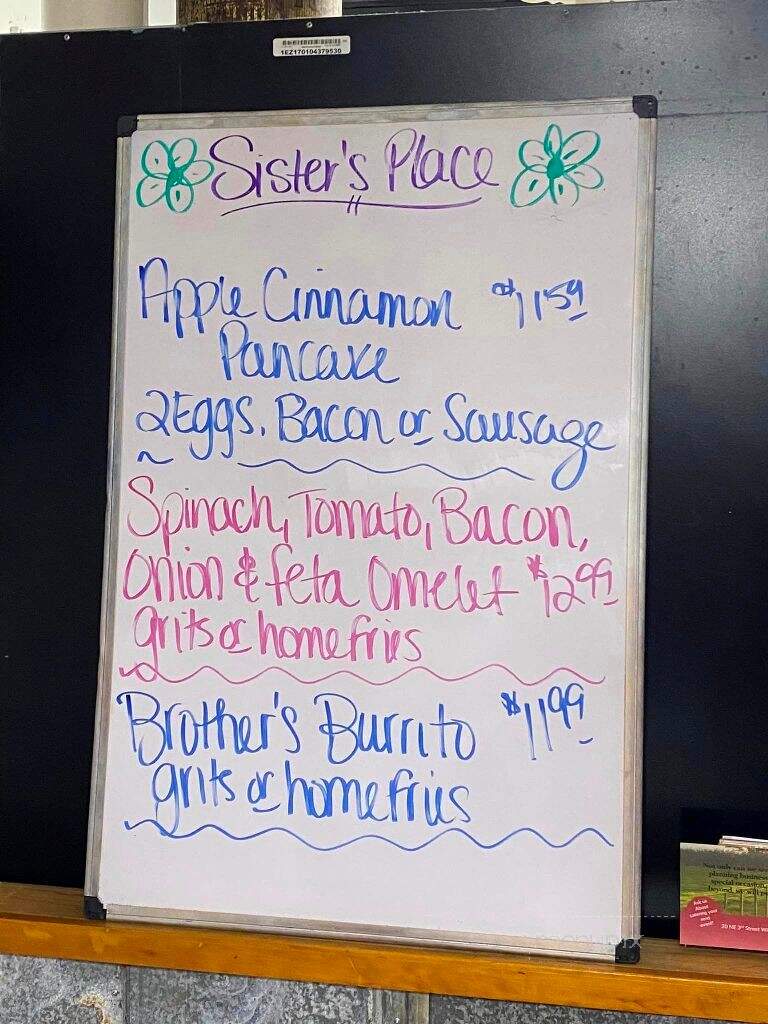 1EZ170104379530
Sister's Place
Apple Cinnamon $11.59
Pancake
2 Eggs, Bacon or Sausage
Spinach, Tomato, Bacon,
Onion & feta Omelet $12.99
grits or homefries
Brother's Burrito $11.99
grits or homefries
Not only can we
planning business
special occasion,
beyond, we will
Ask us
About
catering your
next
event!
20 NE 3rd Street